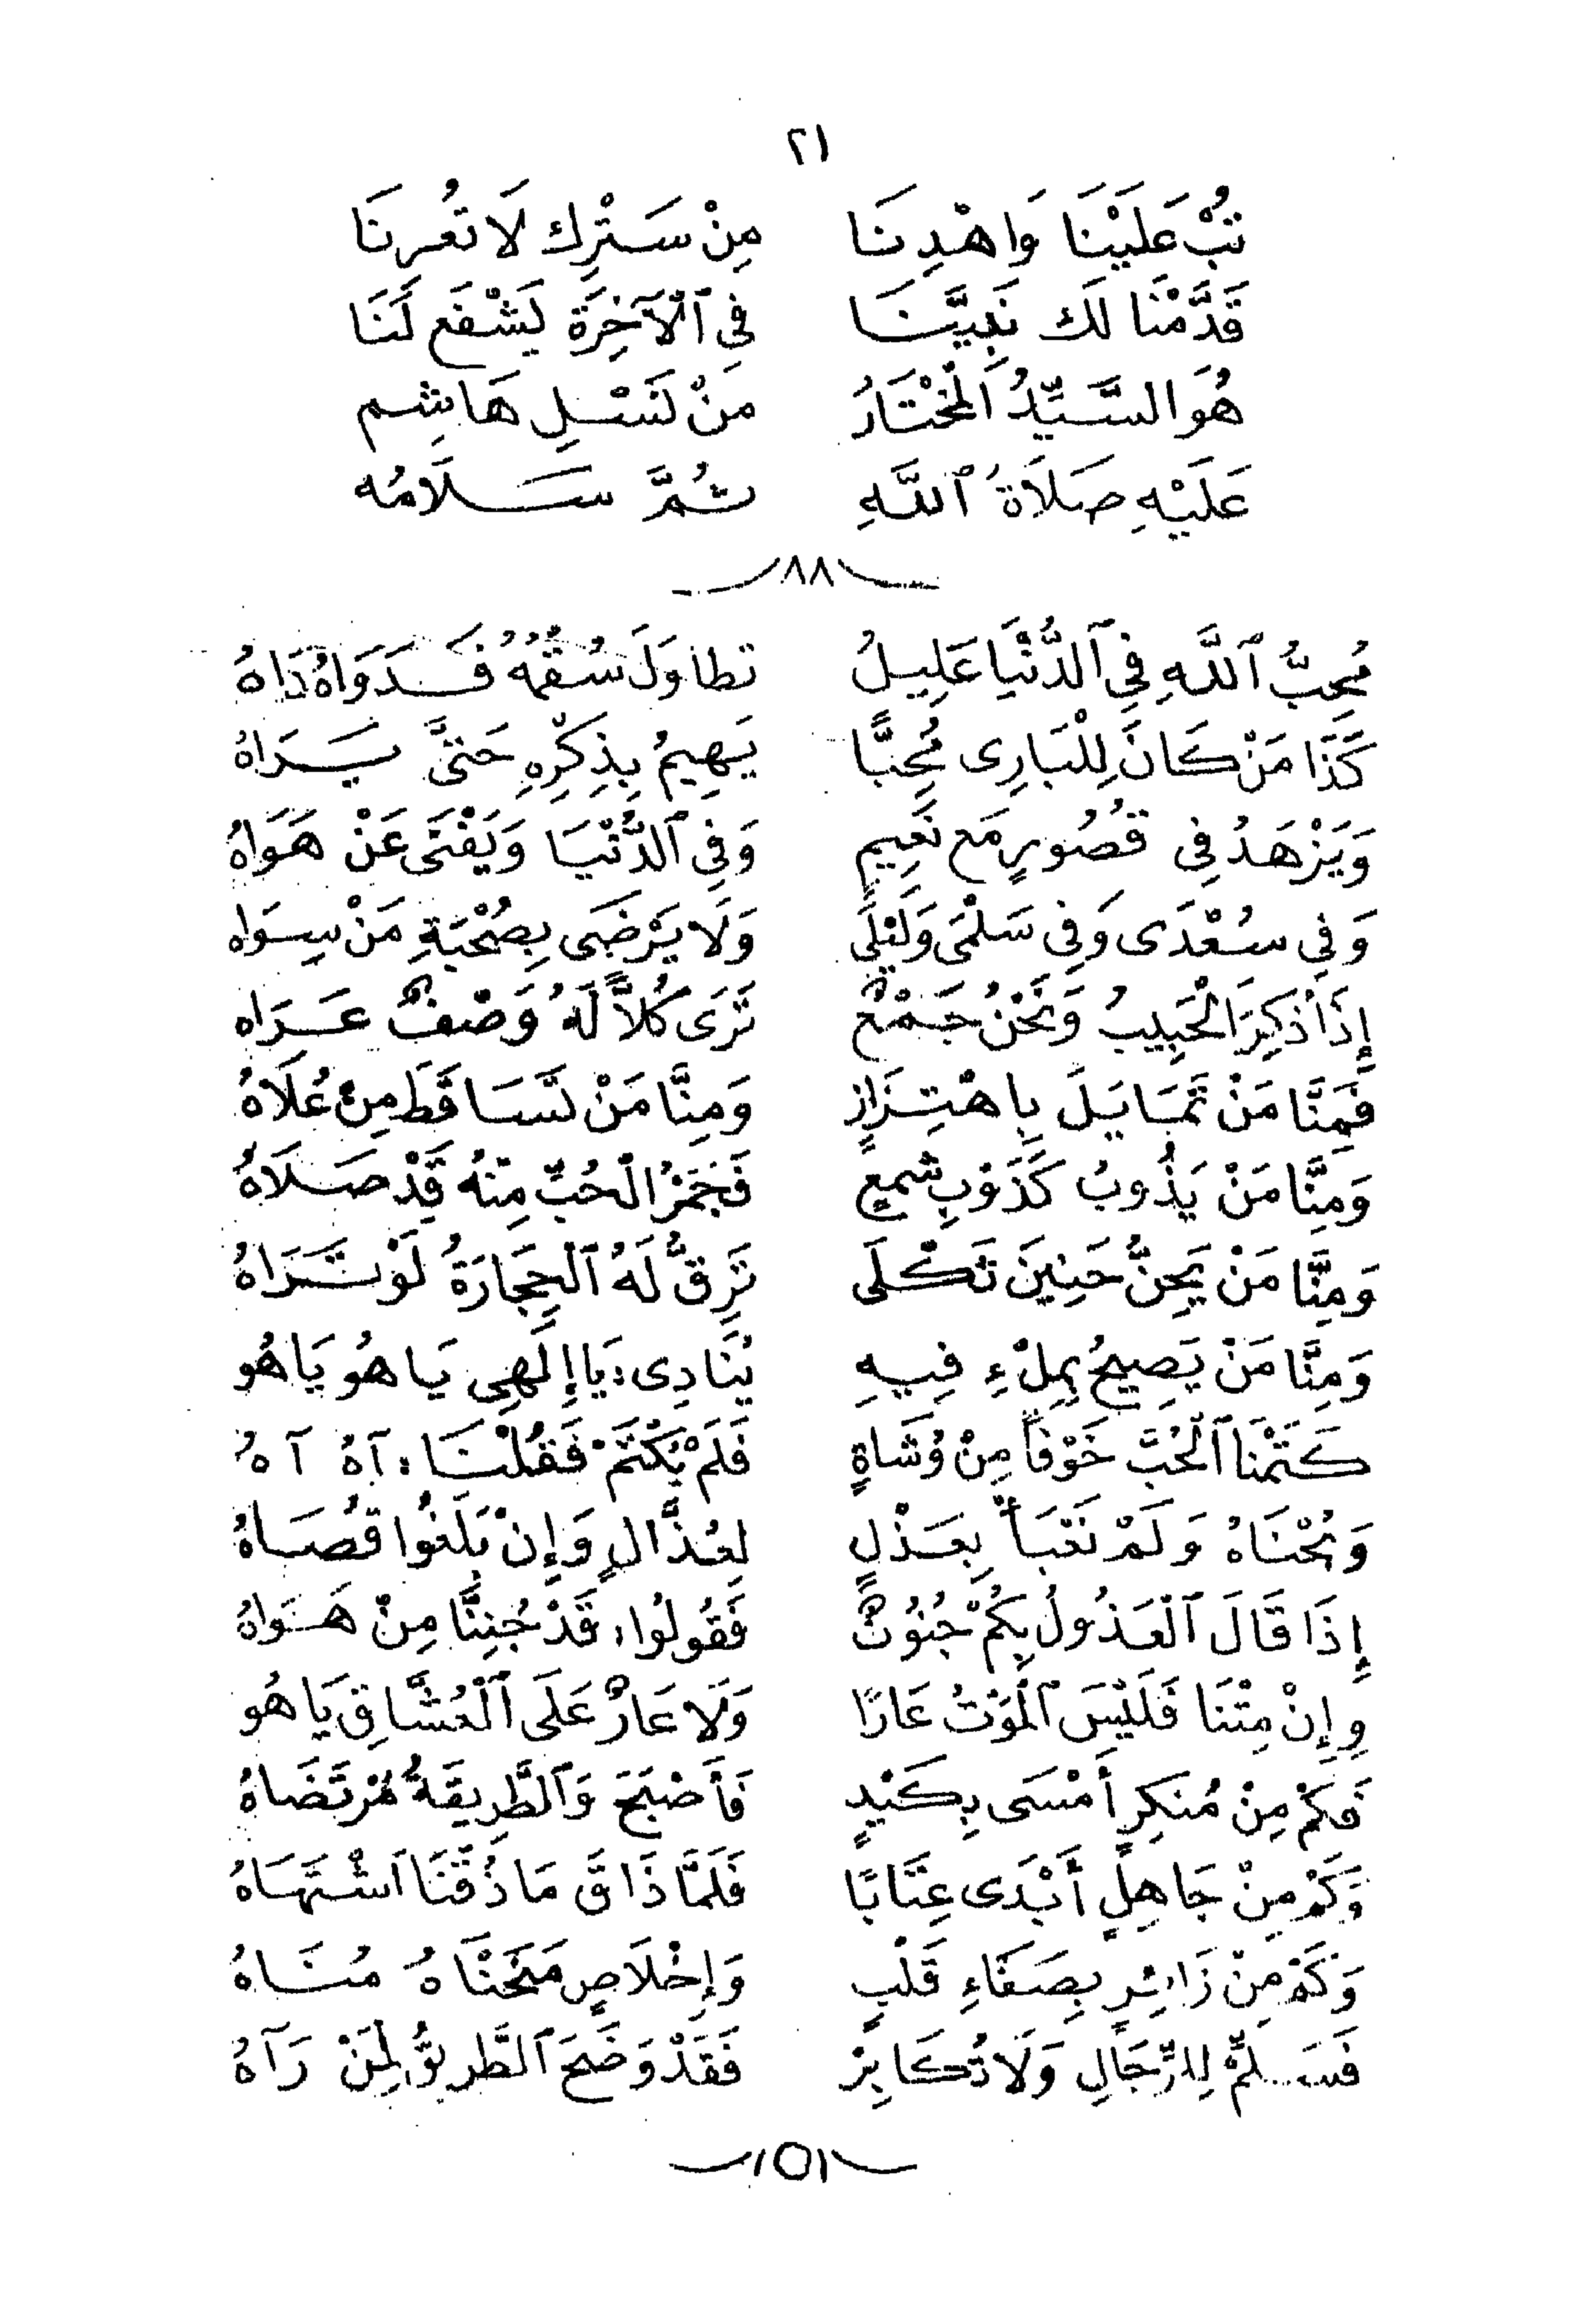 ٢١
تُبْ عَلَيْنَا وَاهْدِنَا مِنْ سَتْرِك لَا تُعْرِنَا
قَدَّمْنَا لَك نَبِيَّنَا فِي ٱلْآخِرَة يَشْفَع لَنَا
هُوَ السَّيِّدُ الْمُخْتَارُ مَنْ نَسْلِ هَاشِم
عَلَيْهِ صَلَاةُ ٱللَّهِ ثُمَّ سَلَامُه
٨٨
مُحِبُّ ٱللَّهِ فِي ٱلدُّنْيَا عَلِيلُ تَطَاوَلَ سُقْمُهُ فَدَوَاهُ دَاهُ
كَذَا مَنْ كَانَ لِلْبَارِى مُحِبًّا يَهِيمُ بِذِكْرِهِ حَتَّى يَرَاهُ
وَيَزْهَدُ فِي قُصُورٍ مَع نَعِيمٍ وَفِي ٱلدُّنْيَا وَيَفْنَى عَنْ هَوَاهُ
وَفِي سُعْدَى وَفِي سَلْمَى وَلَيْلَى وَلَا يَرْضَى بِصُحْبَةِ مَنْ سِوَاه
إِذَا ذُكِرَ الْحَبِيبُ وَنَحْنُ جَمْعٌ تَرَى كُلاًّ لَهُ وَصْفٌ عَرَاه
فَمِنَّا مَنْ تَمَايَلَ بِاهْتِزَازٍ وَمِنَّا مَنْ تَسَاقَطَ مِنْ عُلَاهُ
وَمِنَّا مَنْ يَذُوبُ كَذَوْبِ شَمْعٍ فَجَمْرُ الْحُبِّ مِنْهُ قَدْ صَلَاهُ
وَمِنَّا مَنْ يَحِنُّ حَنِينَ ثَكْلَى تَرِقُّ لَهُ ٱلْحِجَارَةُ لَوْ تَرَاهُ
وَمِنَّا مَنْ يَصِيحُ بِمِلْءِ فِيهِ يُنَادِى: يَا إِلَهِي يَا هُو يَا هُو
كَتَمْنَا ٱلْحُبَّ خَوْفاً مِنْ وُشَاةٍ فَلَمْ يُكْتَمْ فَقُلْنَا: آهُ آهُ
وَبُحْنَاهُ وَلَمْ نَعْبَأْ بِعَذْلٍ لِعُذَّالٍ وَإِنْ بَلَغُوا قُصَاهُ
إِذَا قَالَ ٱلْعَذُولُ بِكُمْ جُنُونٌ فَقُولُوا: قَدْ جُنِنَّا مِنْ هَوَاهُ
وَإِنْ مِتْنَا فَلَيْسَ ٱلْمَوْتُ عَارًا وَلَا عَارٌ عَلَى ٱلْعُشَّاقِ يَا هُو
فَكَمْ مِنْ مُنْكِرٍ أَمْسَى بِكَيْدٍ فَأَصْبَحَ وَٱلطَّرِيقَةُ مُرْتَضَاهُ
وَكَمْ مِنْ جَاهِلٍ أَبْدَى عِتَابًا فَلَمَّا ذَاقَ مَا ذُقْنَا ٱشْتَهَاهُ
وَكَمْ مِنْ زَائِرٍ بِصَفَاءِ قَلْبٍ وَإِخْلَاصٍ مَنَحْنَاهُ مُنَاهُ
فَسَلِّمْ لِلرِّجَالِ وَلَا تُكَابِرْ فَقَدْ وَضَحَ ٱلطَّرِيقُ لِمَنْ رَآهُ